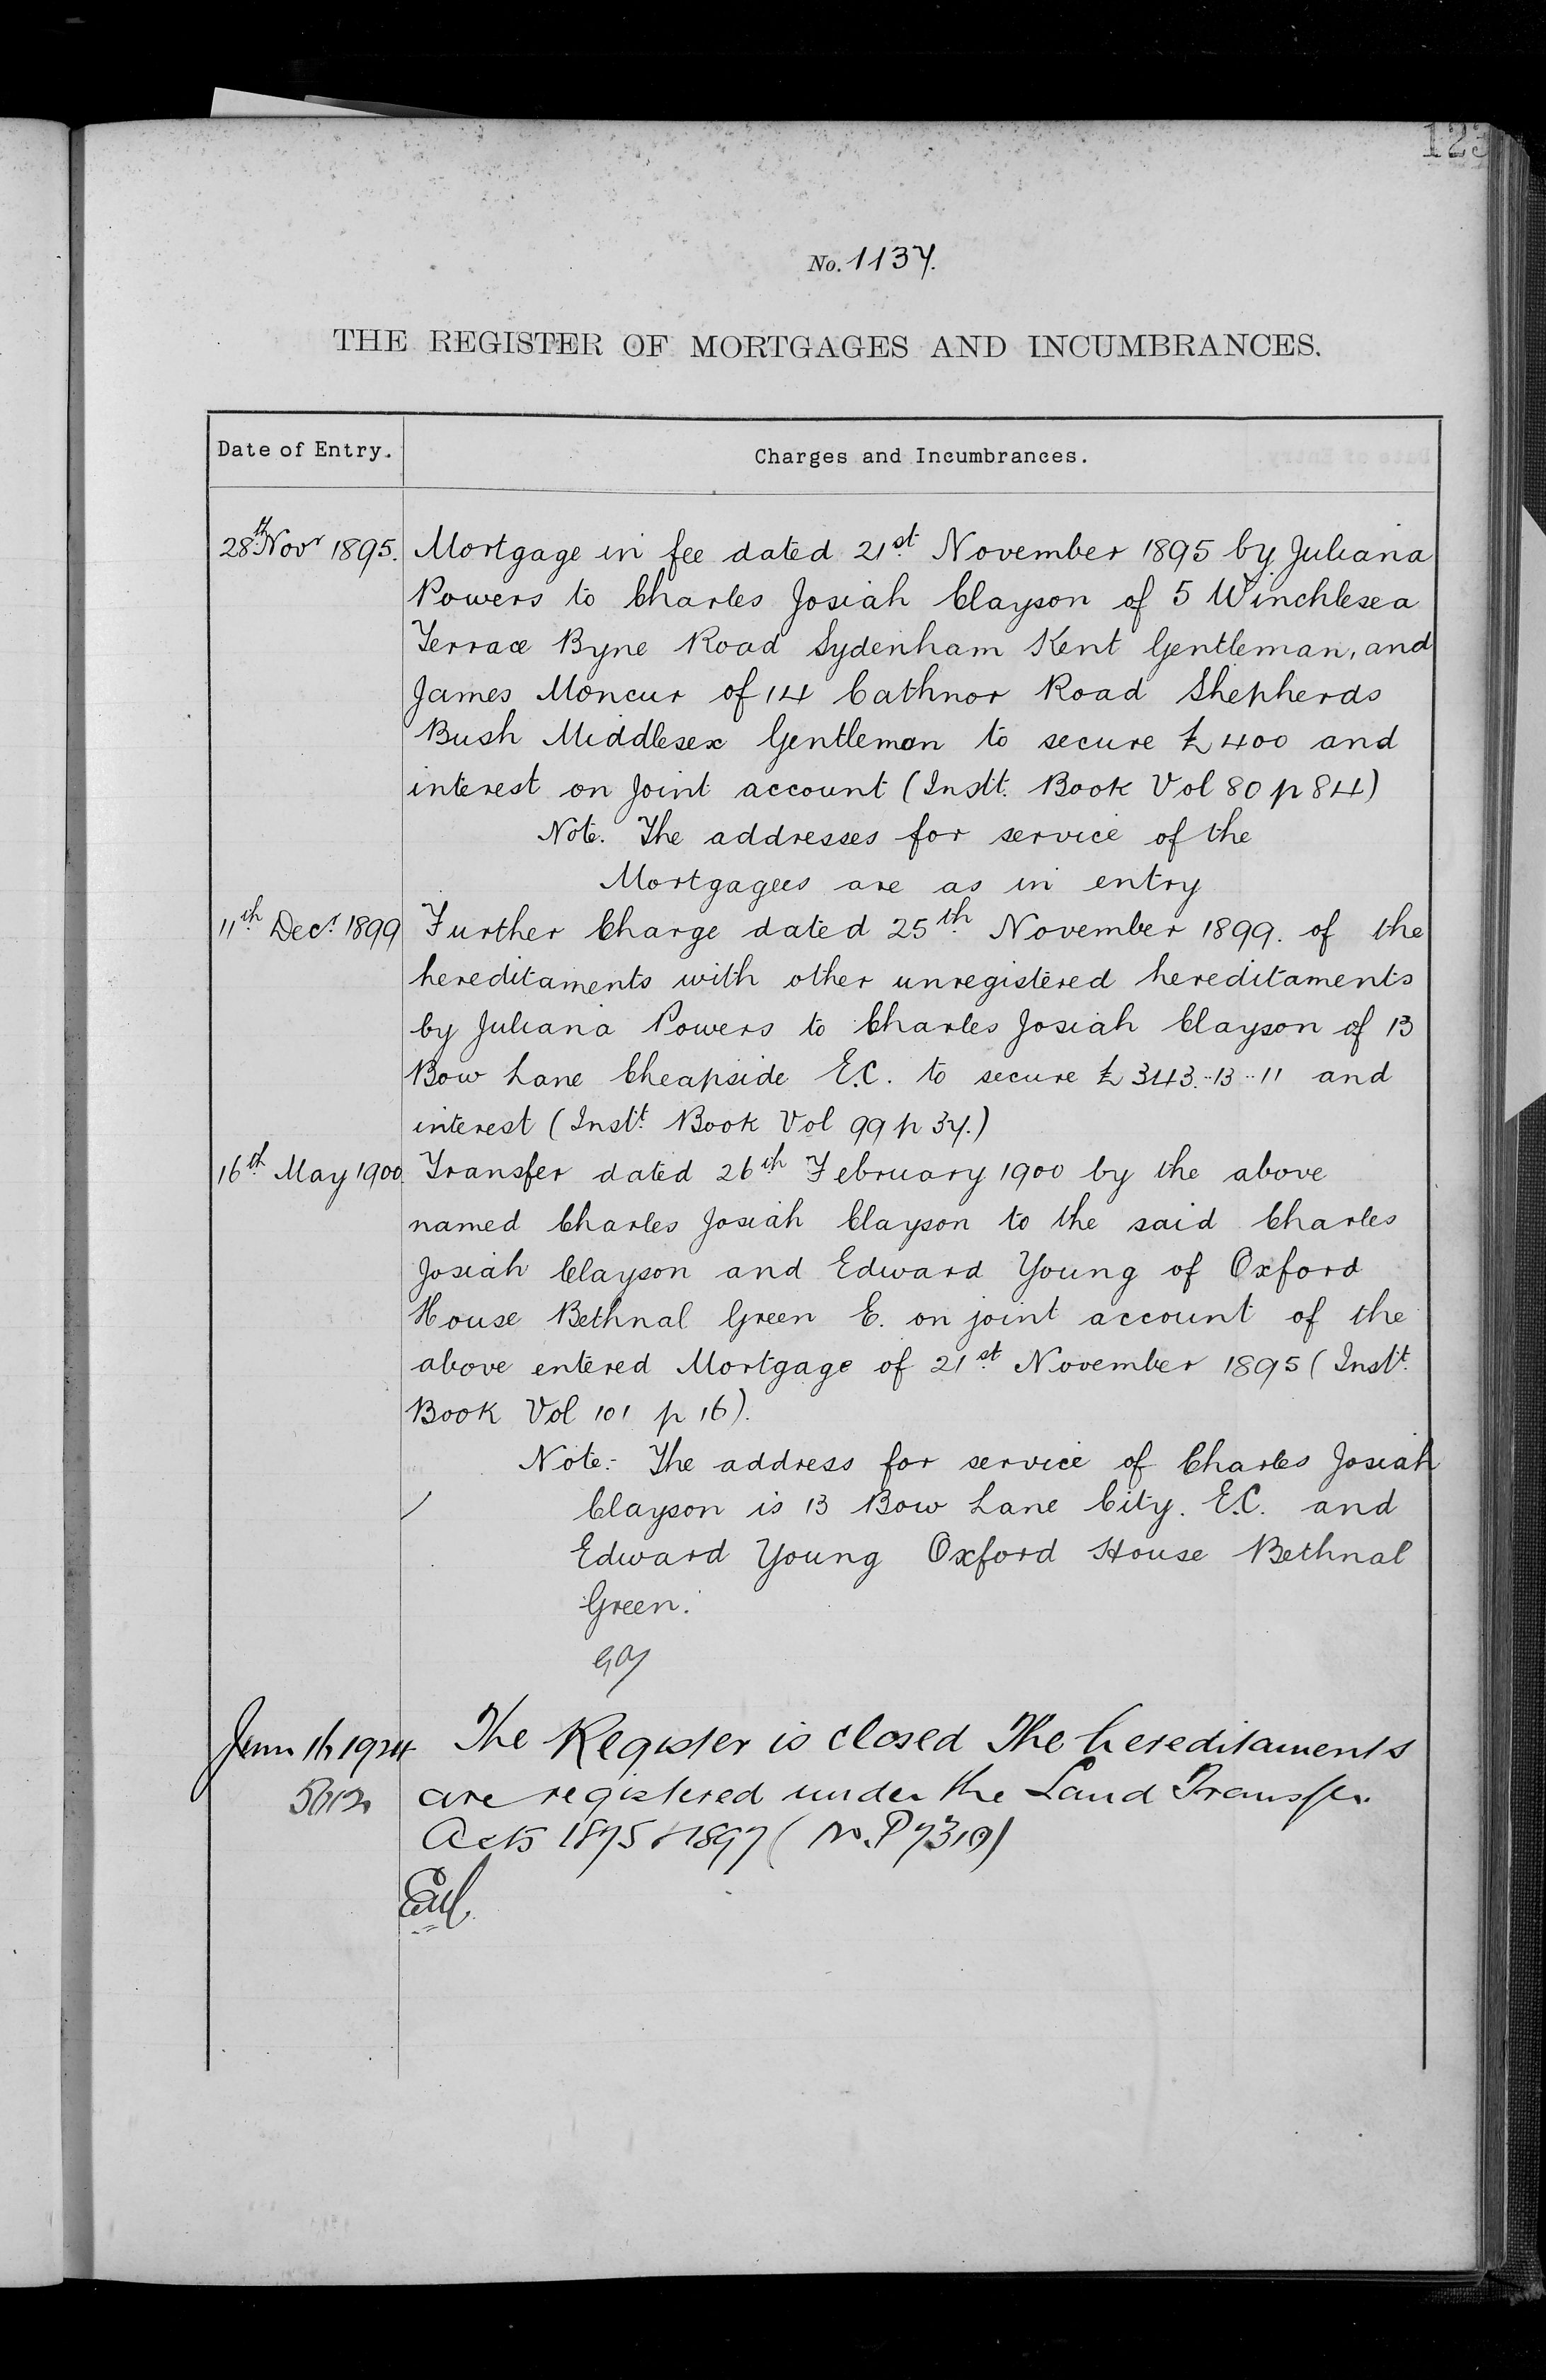 123
No. 1137.
THE REGISTER OF MORTGAGES AND INCUMBRANCES.
Date of Entry. Charges and Incumbrances.
28th Novr 1895. Mortgage in fee dated 21st November 1895 by Juliana
Powers to Charles Josiah Clayson of 5 Winchlesea
Terrace Byne Road Sydenham Kent Gentleman, and
James Moncur of 14 Cathnor Road Shepherds
Bush Middlesex Gentleman to secure £400 and
interest on joint account (Instt. Book Vol 80 p 84)
Note. The addresses for service of the
Mortgagees are as in entry
11th Decr 1899 Further Charge dated 25th November 1899. of the
hereditaments with other unregistered hereditaments
by Juliana Powers to Charles Josiah Clayson of 13
Bow Lane Cheapside E.C. to secure £343..13..11 and
interest (Instt. Book Vol 99 p 37.)
16th May 1900. Transfer dated 26th February 1900 by the above
named Charles Josiah Clayson to the said Charles
Josiah Clayson and Edward Young of Oxford
House Bethnal Green E. on joint account of the
above entered Mortgage of 21st November 1895 (Instt.
Book Vol 101 p 16).
Note:- The address for service of Charles Josiah
Clayson is 13 Bow Lane City. E.C. and
Edward Young Oxford House Bethnal
Green.
1924 The Register is closed The hereditaments
are registered under the Land Transfer
Acts 1875 & 1897 (No. P7310)